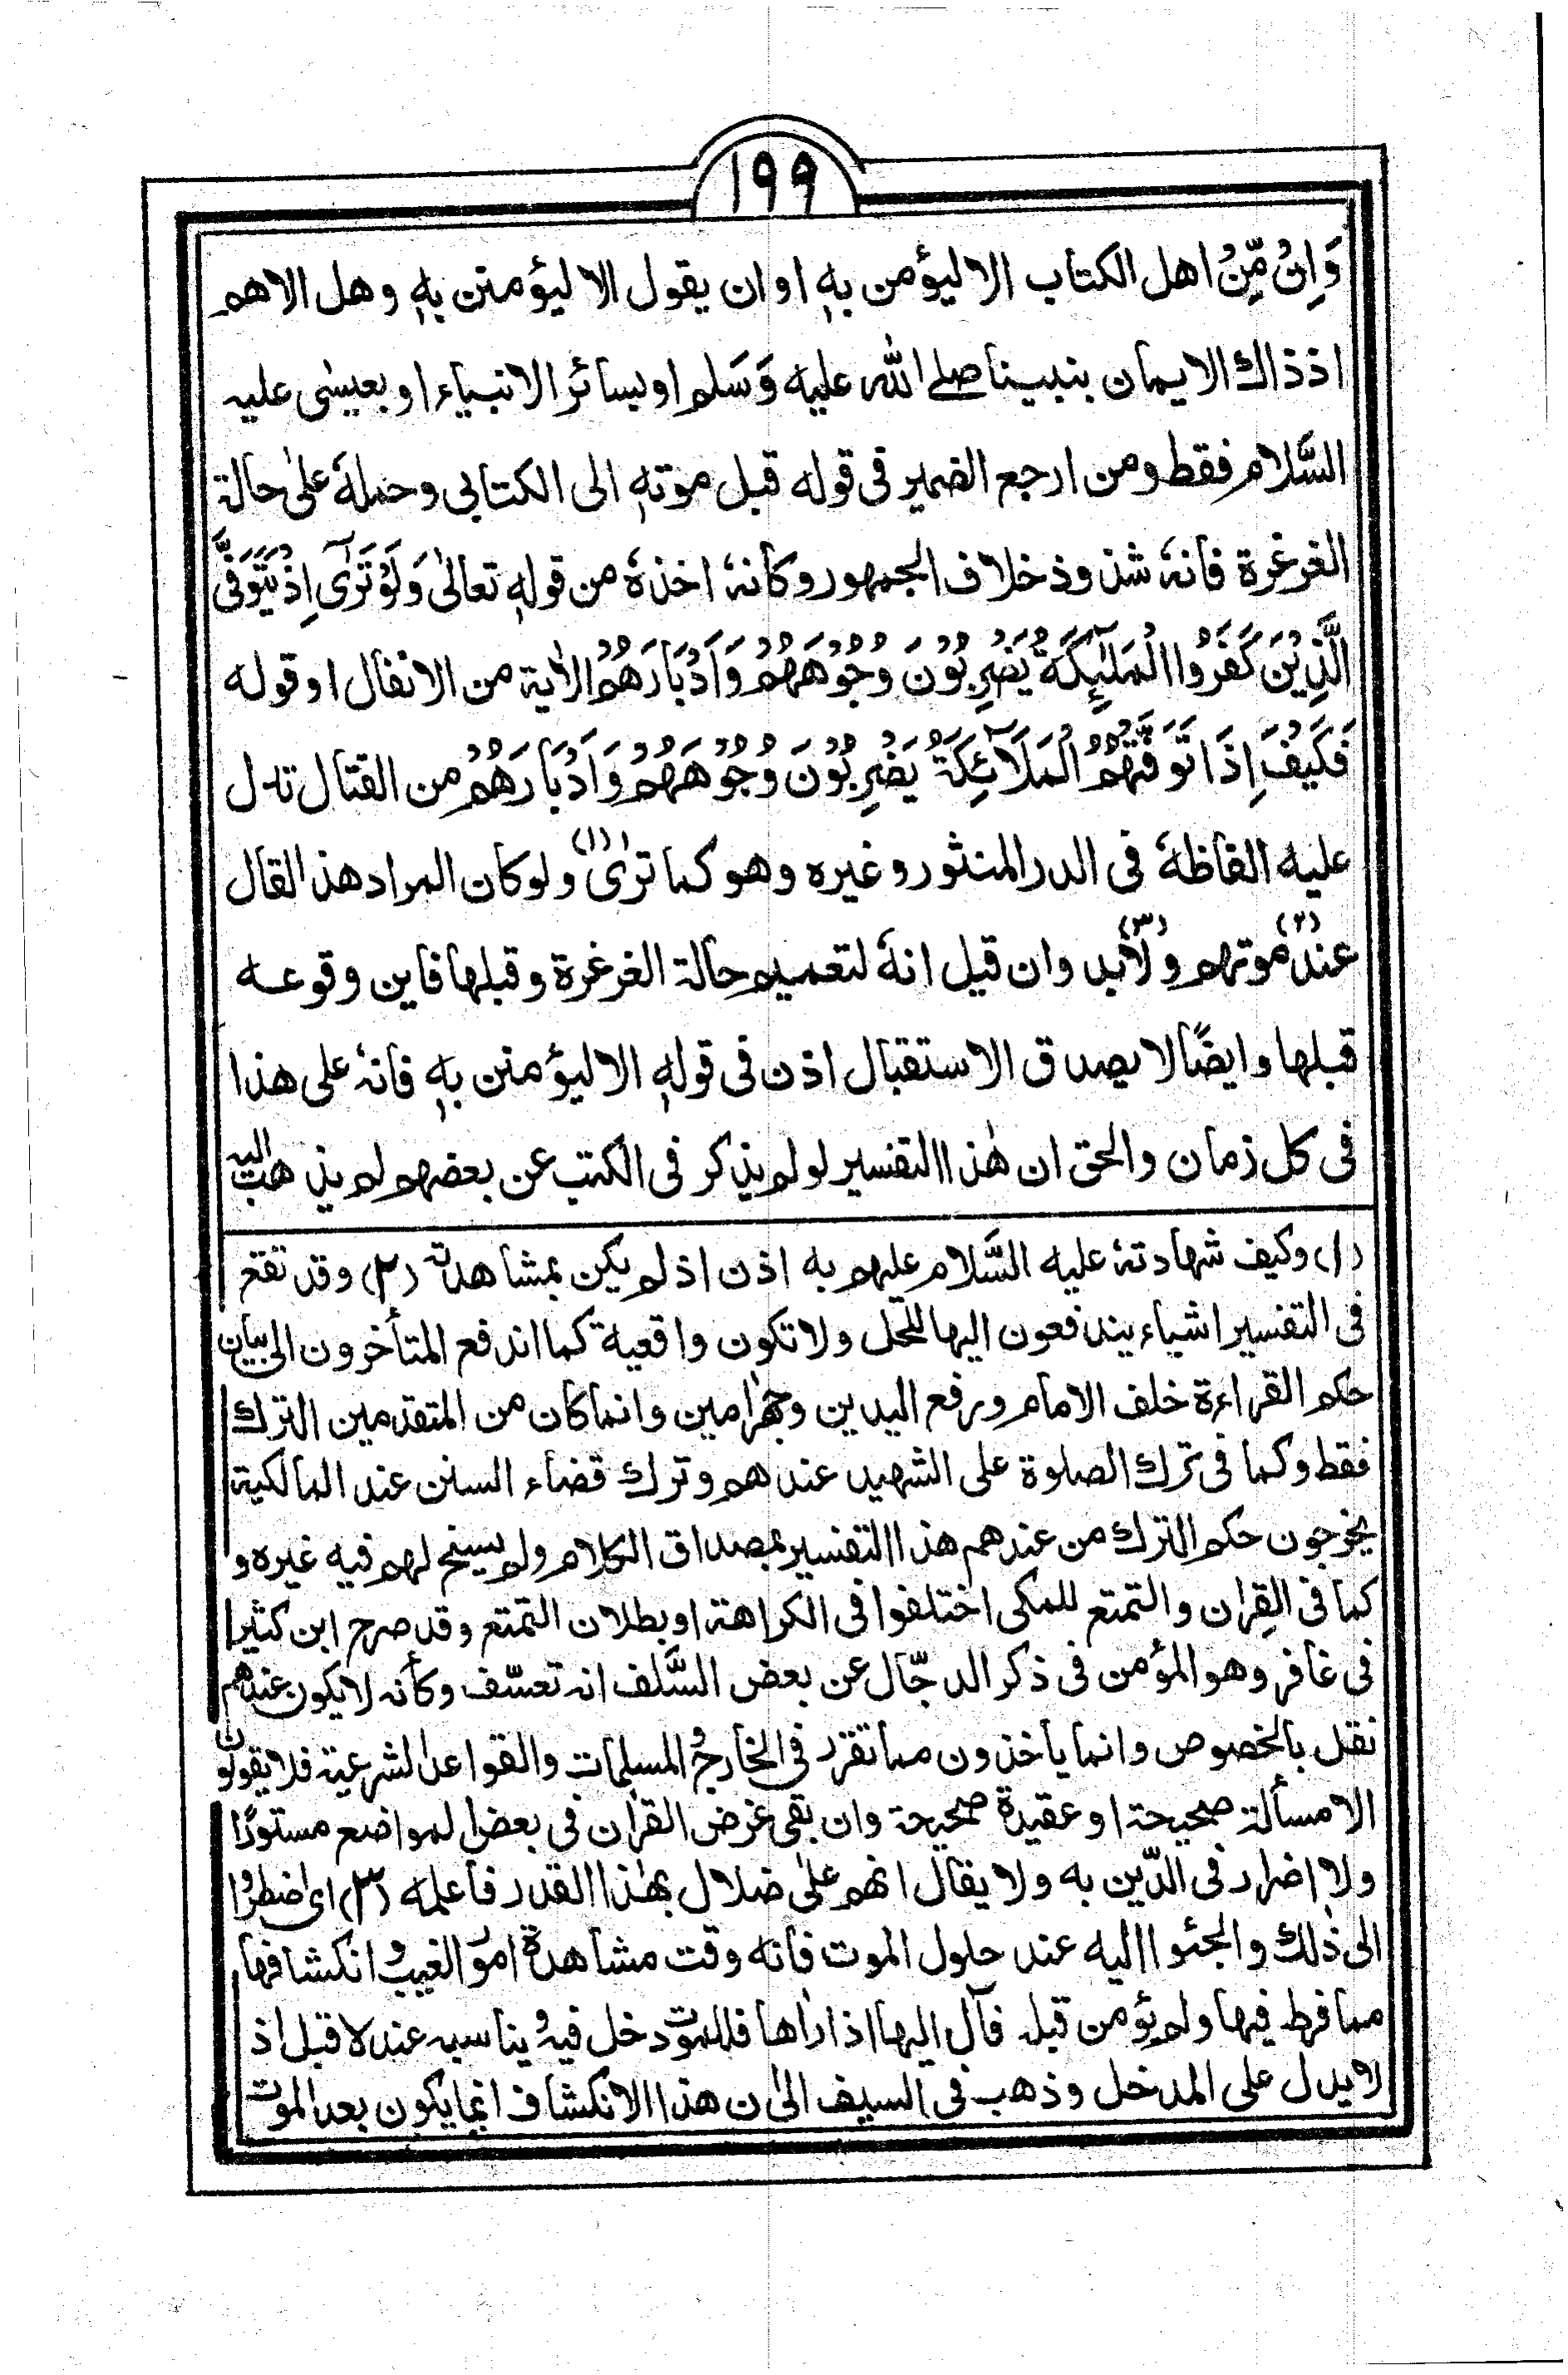 ١٩٩
وَاِنْ مِّنْ اهل الكتاب الا ليؤمن بهٖ او ان يقول الا ليؤمنن بهٖ وهل الاهم
اذ ذاك الايمان بنبينا صلے الله عليه وَسَلم او بسائر الانبياء او بعيسٰى عليه
السَّلام فقط ومن ارجع الضمير فى قوله قبل موتهٖ الى الكتابى وحملهٗ علىٰ حالة
الغرغرة فانهٗ شذوذ خلاف الجمهور وكانهٗ اخذهٗ من قولهٖ تعالىٰ وَلَوْ تَرٰٓى اِذْ يَتَوَفَّى
الَّذِيْنَ كَفَرُوا الْمَلٰٓئِكَةُ يَضْرِبُوْنَ وُجُوْهَهُمْ وَاَدْبَارَهُمْ الاٰية من الانفال او قوله
فَكَيْفَ اِذَا تَوَفَّتْهُمُ الْمَلَآئِكَةُ يَضْرِبُوْنَ وُجُوْهَهُمْ وَاَدْبَارَهُمْ من القتال تدل
عليه الفاظهٗ فى الدر المنثور وغيره وهو كما ترىٰ (١) ولو كان المراد هذا لقال
عند (٢) موتهم ولابد (٣) وان قيل انهٗ لتعميم حالة الغرغرة وقبلها فاين وقوعه
قبلها وايضًا لا يصدق الاستقبال اذن فى قولهٖ الا ليؤمنن بهٖ فانهٗ على هذا
فى كل زمان والحق ان هٰذا التفسير لو لم يذكر فى الكتب عن بعضهم لم يذهب اليه
(١) وكيف شهادتهٗ عليه السَّلام عليهم به اذن اذ لم يكن بمشاهدته (٢) وقد تقع
فى التفسير اشياء يندفعون اليها للحل ولا تكون واقعية كما اندفع المتأخرون الى بيان
حكم القراءة خلف الامام ورفع اليدين وجهر اٰمين وانما كان من المتقدمين الترك
فقط وكما فى ترك الصلوة على الشهيد عندهم وترك قضاء السنن عند المالكية
يخرجون حكم الترك من عندهم هذا التفسير بمصداق الكلام ولم يسنح لهم فيه غيره و
كما فى القِران والتمتع للمكى اختلفوا فى الكراهة او بطلان التمتع وقد صرح ابن كثير
فى غافر وهو المؤمن فى ذكر الدجّال عن بعض السَّلف انه تعسّف وكأنه لا يكون عندهم
نقل بالخصوص وانما ياخذون مما تقرر فى الخارج و المسلمات والقواعد الشرعية فلا يقولون
الا مسألة صحيحة او عقيدة صحيحة وان بقى غرض القراٰن فى بعض المواضع مستورًا
ولا اضرار فى الدّين به ولا يقال انهم علىٰ ضلال بهٰذا القدر فاعلمه (٣) اى اضطروا
الى ذٰلك والجئوا اليه عند حلول الموت فانه وقت مشاهدة امور الغيب وانكشافها
مما فرط فيها ولم يؤمن قبل فآل اليها اذا راٰها فللموت دخل فيه ويناسبه عند لا قبل اذ
لا يدل على المدخل وذهب فى السيف الىٰ ان هذا الانكشاف انما يكون بعد الموت